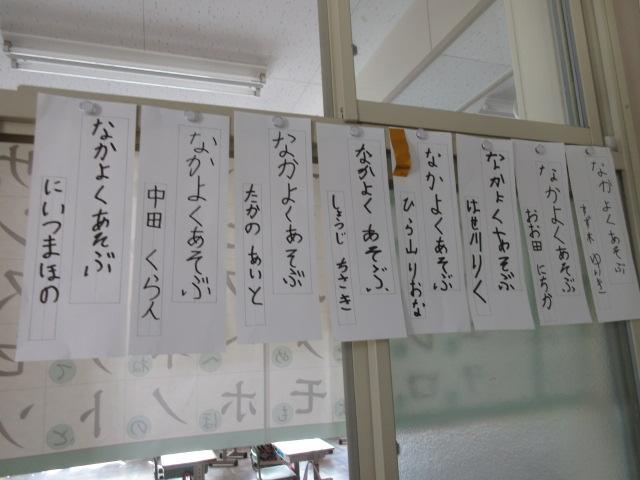 なかよくあそぶ
なかよくあそぶ
おお田 にちか
なかよくあそぶ
はせ川りく
なかよくあそぶ
ひら山りおな
なかよく あそぶ
しょうじ ちさき
なかよくあそぶ
たかの あいと
なかよくあそぶ
中田 くら人
なかよくあそぶ
にいつまほの